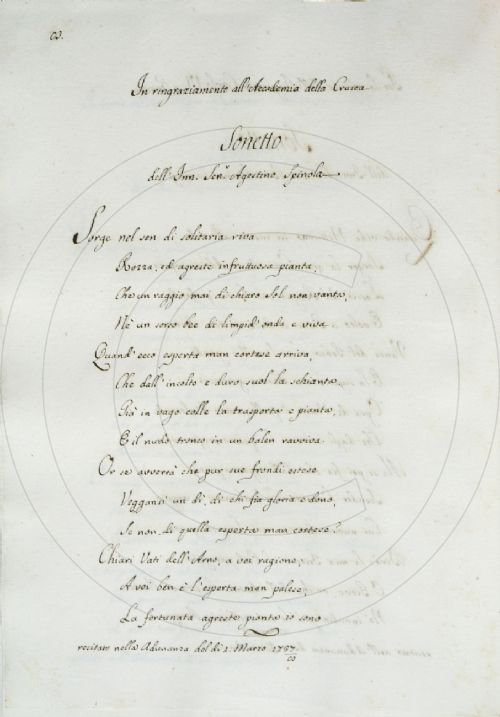 In ringraziamento all'Accademia della Crusca
Sonetto
dell'Inn. Sen.r Agostino Spinola
Sorge nel sen di solitaria riva
Rozza, ed agreste infruttuosa pianta,
Che un raggio mai di chiaro Sol non vanta,
Nè un sorso bee di limpid'onda e viva.
Quand'ecco esperta man cortese arriva,
Che dall'incolto e duro suol la schianta,
Già in vago colle la trasporta e pianta,
E il nudo tronco in un balen ravviva.
Or se avverrà che pur sue frondi estese
Veggansi un dì, di chi fia gloria e dono,
Se non di quella esperta man cortese?
Chiari Vati dell'Arno, a voi ragiono;
A voi ben è l'esperta man palese,
La fortunata agreste pianta io sono
recitato nella Adunanza del dì 1. Marzo 1787